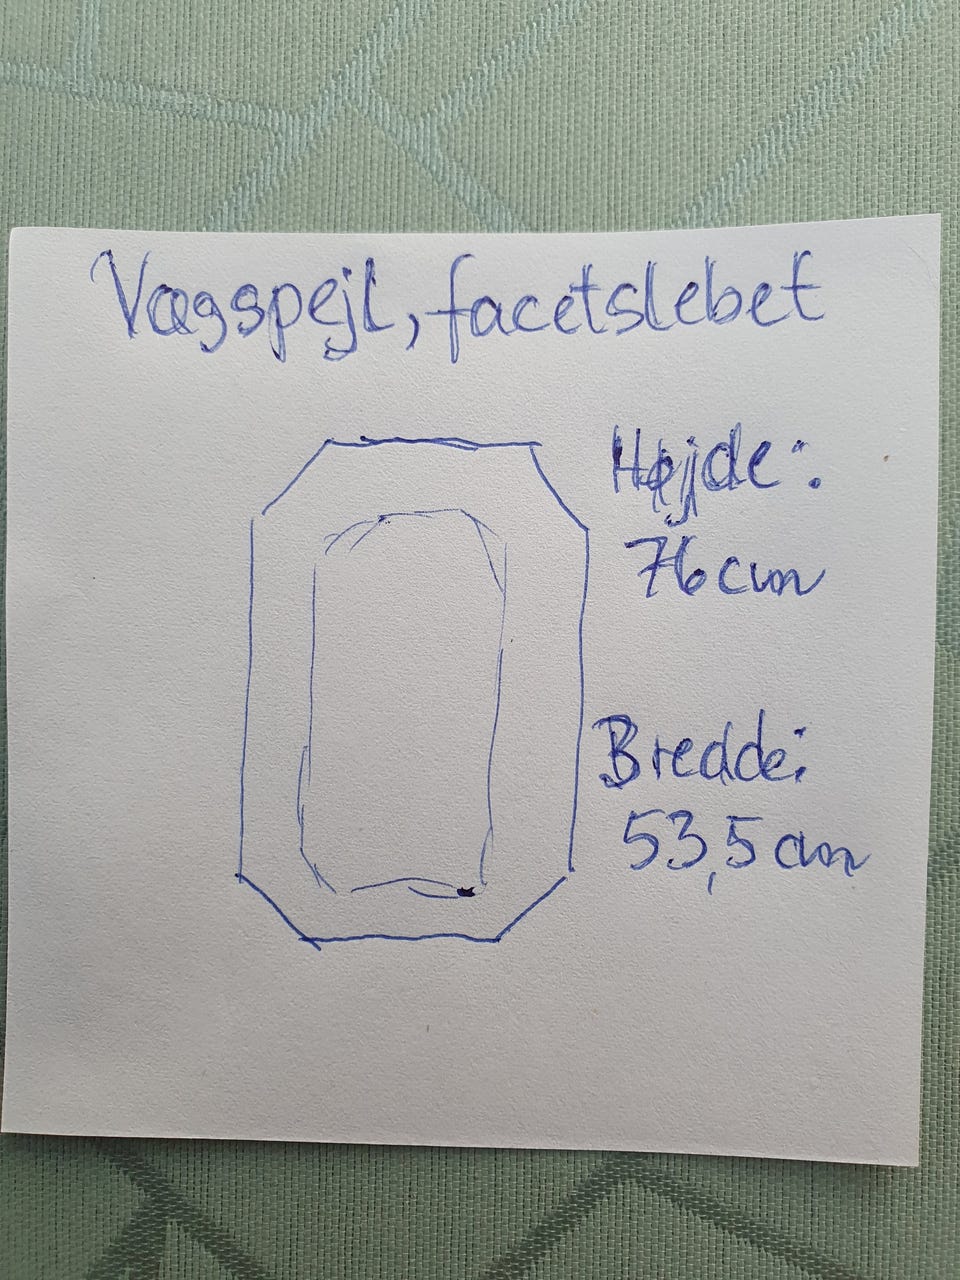 Vægspejl, facetslebet
Højde:
76 cm
Bredde:
53,5 cm